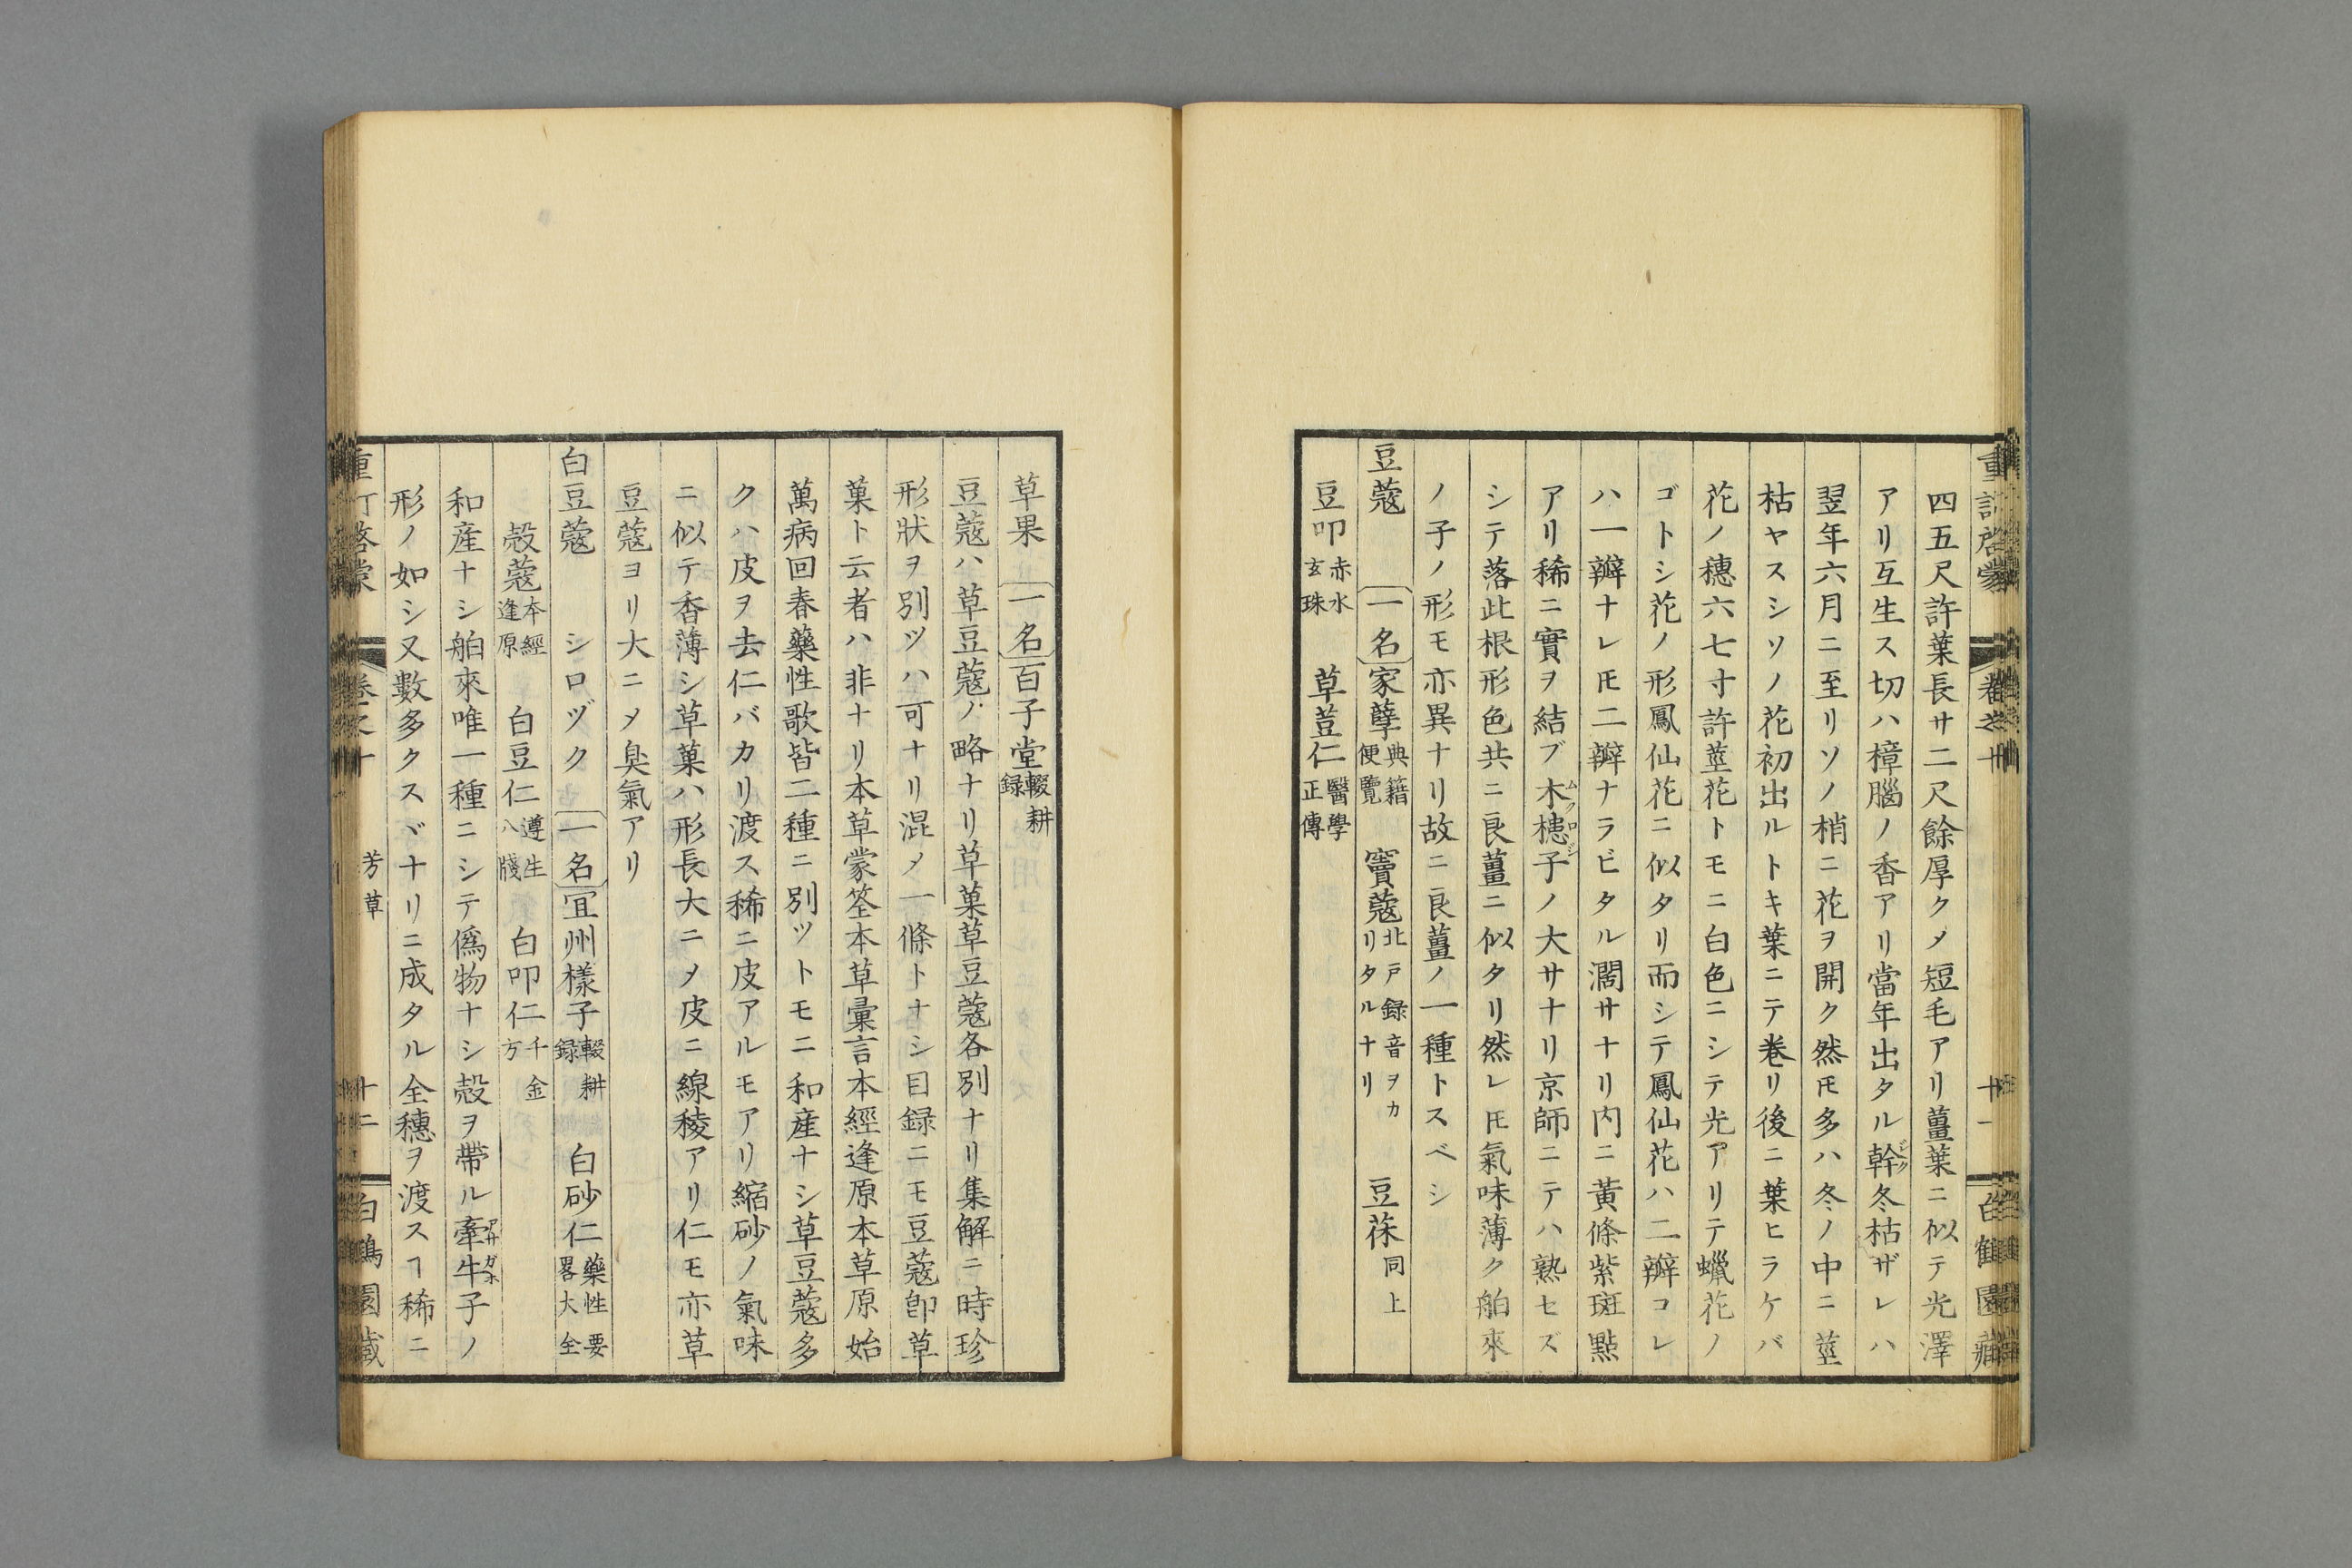 四五尺許葉長サ二尺餘厚クメ短毛アリ薑葉ニ似テ光澤
アリ互生ス切ハ樟腦ノ香アリ當年出タル幹冬枯ザレハ
翌年六月ニ至リソノ梢ニ花ヲ開ク然𪜈多ハ冬ノ中ニ莖
枯ヤスシソノ花初出ルトキ葉ニテ巻リ後ニ葉ヒラケバ
花ノ穗六七寸許莖花トモニ白色ニシテ光アリテ蠟花ノ
ゴトシ花ノ形鳳仙花ニ似タリ而シテ鳳仙花ハ二瓣コレ
ハ一瓣ナレ𪜈二瓣ナラビタル濶サナリ内ニ黃條紫斑點
アリ稀ニ實ヲ結ブ木槵子ノ大サナリ京師ニテハ熟セズ
シテ落此根形色共ニ良薑ニ似タリ然レ𪜈氣味薄ク舶來
ノ子ノ形モ亦異ナリ故ニ良薑ノ一種トスベシ
豆蔻 一名 家孽 典籍便覽 竇蔻 北戸録音ヲカリタルナリ 豆蔲 同上
豆叩 赤水玄珠 草荳仁 醫學正傳
重訂啓蒙 卷之十 十一 白鶴園藏
草果 一名 百子堂 輟耕録
豆蔻ハ草豆蔻ノ略ナリ草菓草豆蔻各別ナリ集解ニ時珍
形狀ヲ別ツハ可ナリ混メ一條トナシ目録ニモ豆蔻卽草
菓ト云者ハ非ナリ本草蒙筌本草彙言本經逢原本草原始
萬病回春藥性歌皆二種ニ別ツトモニ和産ナシ草豆蔻多
クハ皮ヲ去仁バカリ渡ス稀ニ皮アルモアリ縮砂ノ氣味
ニ似テ香薄シ草菓ハ形長大ニメ皮ニ線稜アリ仁モ亦草
豆蔻ヨリ大ニメ臭氣アリ
白豆蔻 シロヅク 一名 宜州樣子 輟耕録 白砂仁 藥性要畧大全
殼蔻 本經逢原 白豆仁 遵生八牋 白叩仁 千金方
和産ナシ舶來唯一種ニシテ僞物ナシ殼ヲ帶ル牽牛子ノ
形ノ如シ又數多クスヾナリニ成タル全穗ヲ渡スヿ稀ニ
重訂啓蒙 卷之十 芳草 十二 白鶴園藏